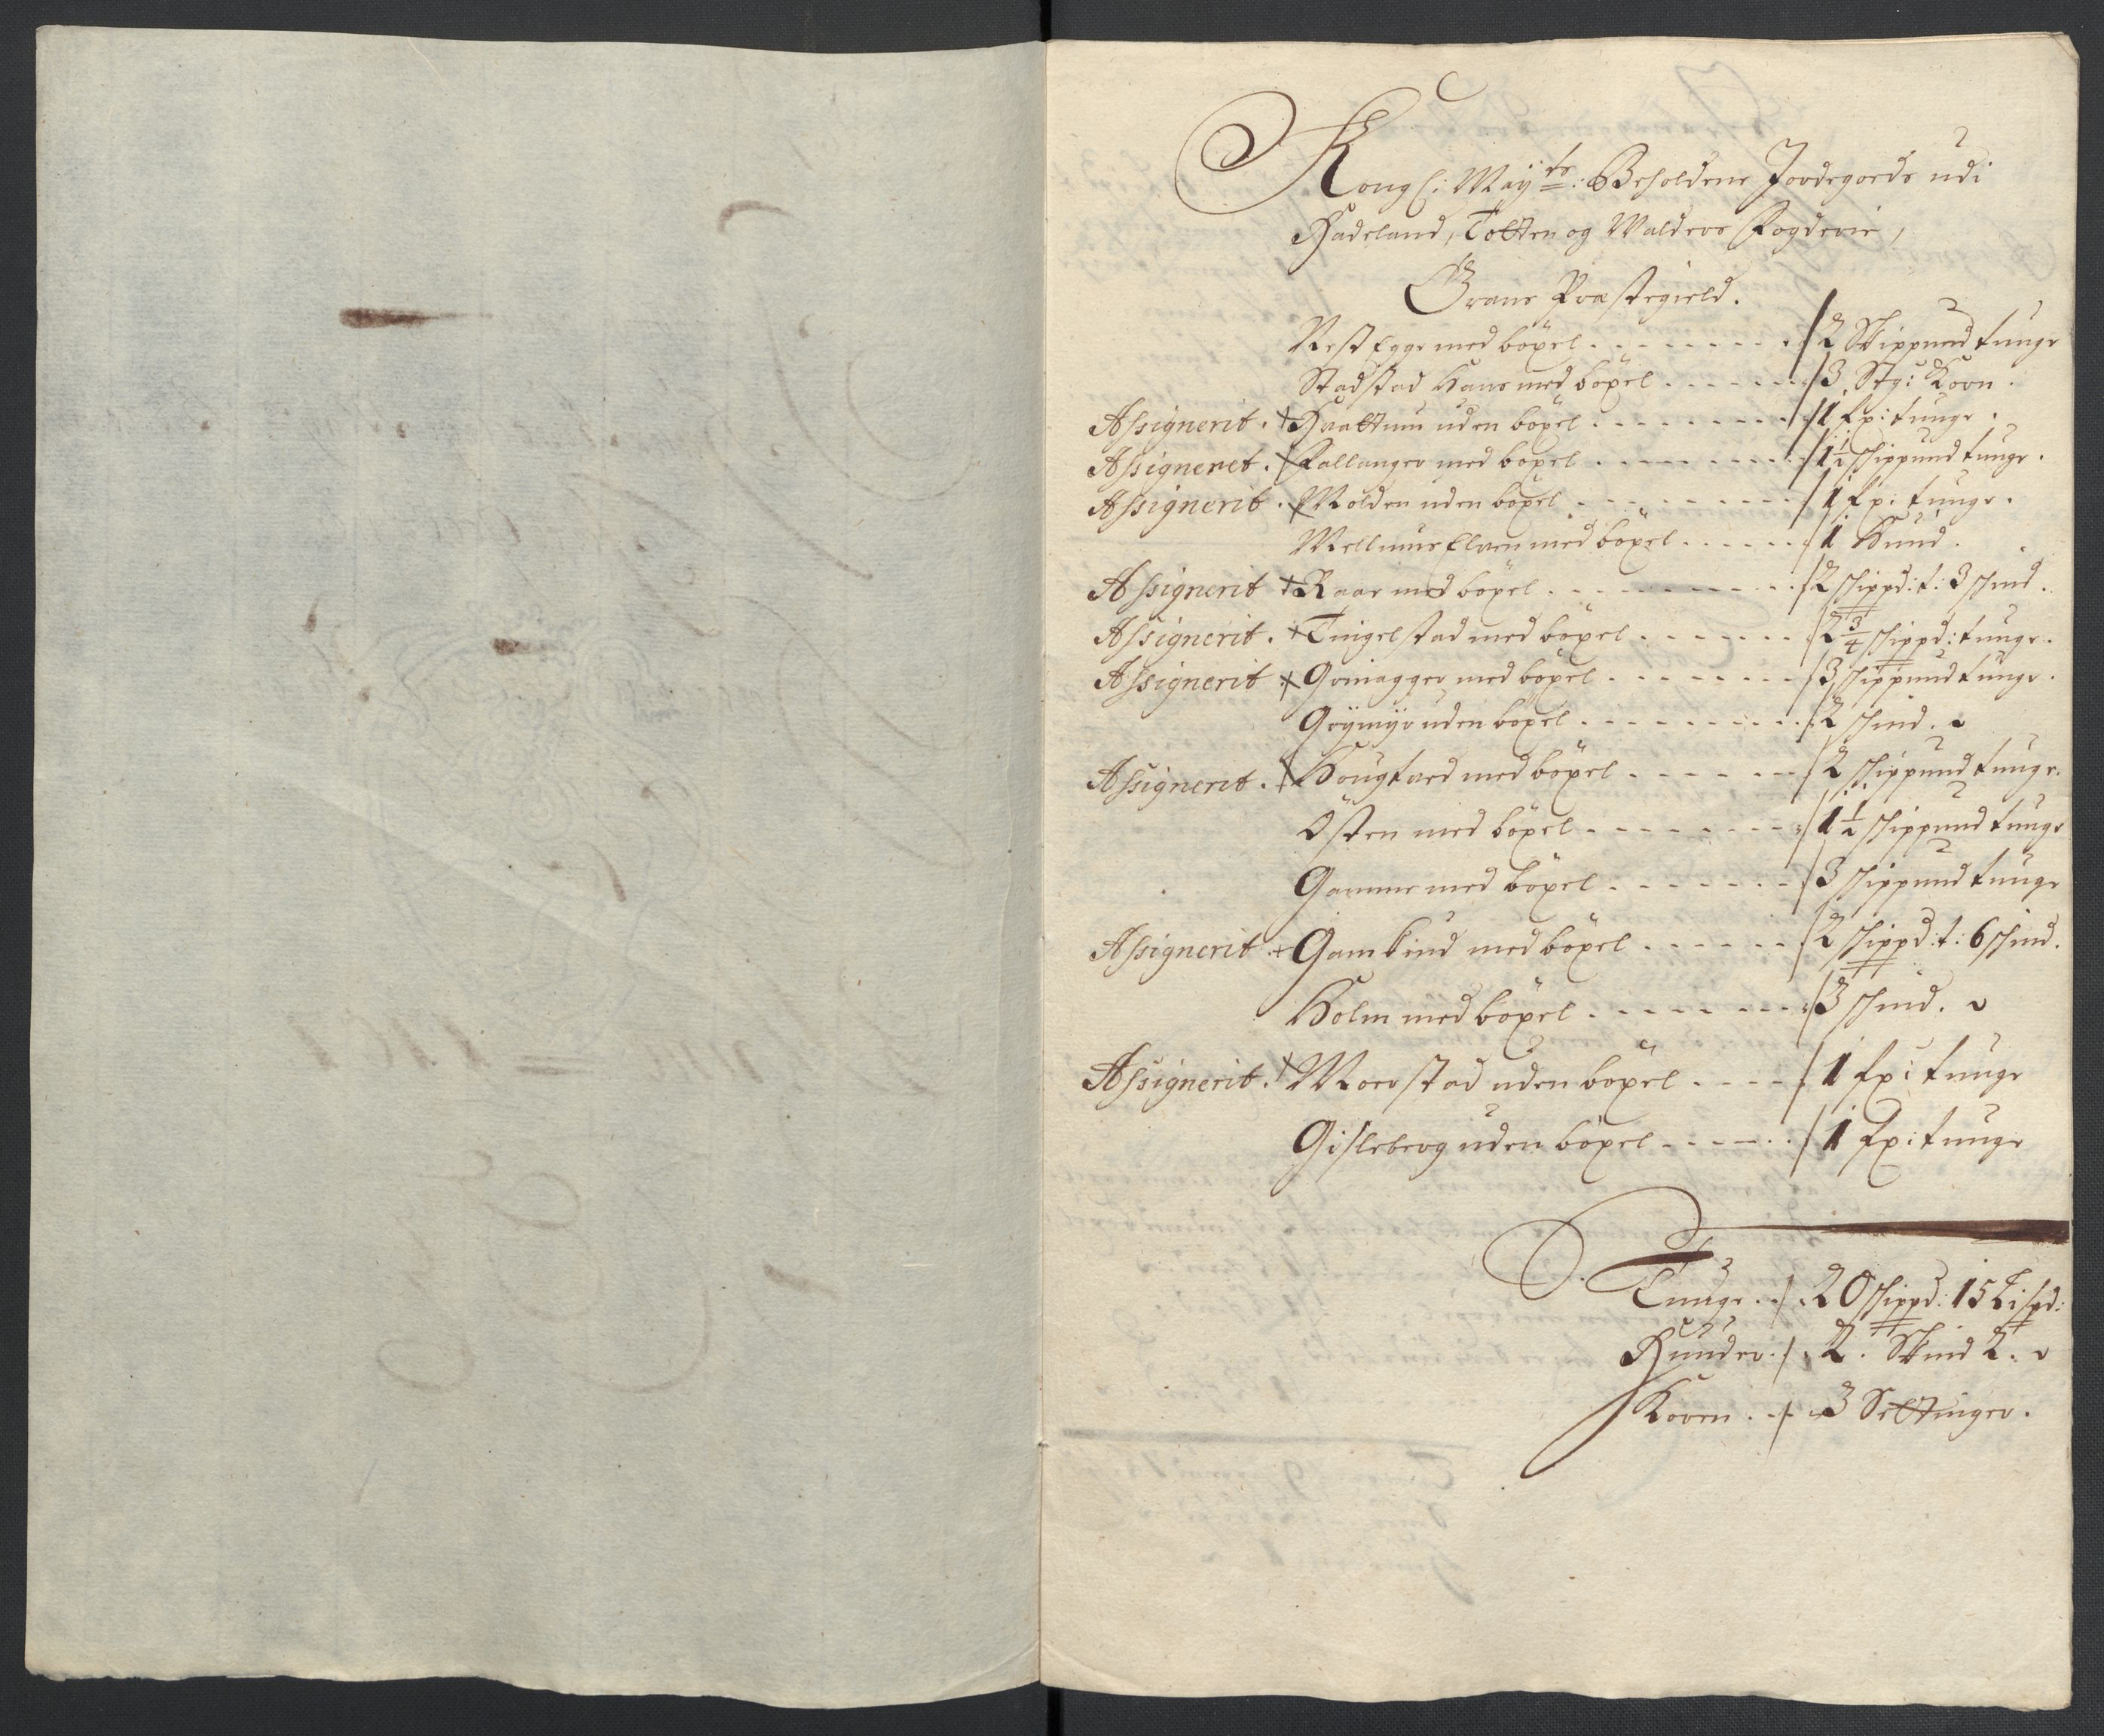 Kongl: Mayts: Beholdene Jordegods udi
Hadeland, Totten og Walders Fogderie,
Grans Præstegield.
Vest Egge med böxel . . . 2 Skippund tunge
Stadstad Hans med böxel . . . 3 Stg: Korn.
Assignerit. Hvattum uden böxel . . . 1 fx: tunge.
Assigneret. Fallanger med böxel . . . 1½ skippund tunge.
Assignerit. Molden uden böxel . . . 1 fx: tunge.
Mellmus Elven med böxel . . . 1 Hund.
Assignerit Raar med böxel . . . 2 skippd: t: 3 skind.
Assignerit. Tingelstad med böxel . . . 2¾ skippd: tunge.
Assignerit Grinagger med böxel . . . 3 skippund tunge.
Grymyr uden böxel . . . 2 skind.
Assignerit. Hougtved med böxel . . . 2 skippund tunge.
Östen med böxel . . . 1½ skippund tunge
Gamme med böxel . . . 3 skippund tunge
Assignerit Gamkind med böxel . . . 2 skippd: t: 6 skind.
Holm med böxel . . . 3 skind.
Assignerit. Morstad uden böxel . . . 1 fx: tunge
Gisleberg uden böxel . . . 1 fx: tunge
Tunge . . 20 skippd: 15 Lispd:
Hunder . 2. Skind 2.
Koren . . 3 Settinger.